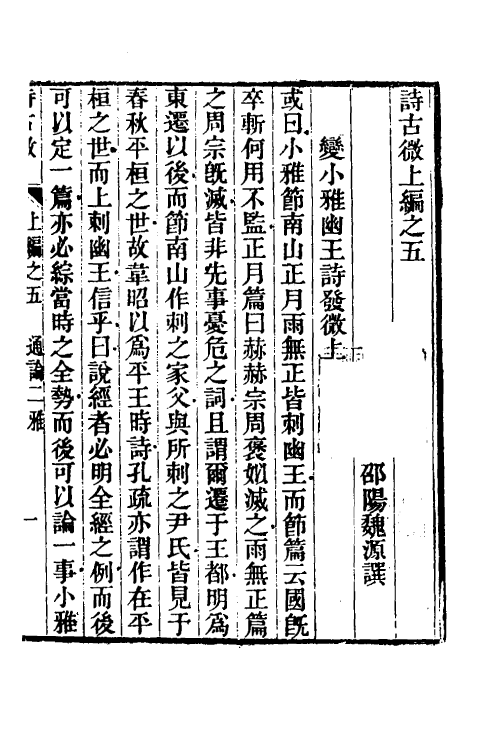 詩古微上編之五
邵陽魏源譔
變小雅幽王詩發微上
或曰小雅節南山正月雨無正皆刺幽王而節篇云國旣
卒斬何用不監正月篇曰赫赫宗周褒姒滅之雨無正篇
之周宗旣滅皆非先事憂危之詞且謂爾遷于王都明爲
東遷以後而節南山作刺之家父與所刺之尹氏皆見于
春秋平桓之世故韋昭以爲平王時詩孔疏亦謂作在平
桓之世而上刺幽王信乎曰說經者必明全經之例而後
可以定一篇亦必綜當時之全勢而後可以論一事小雅
上編之五　通論二雅　一